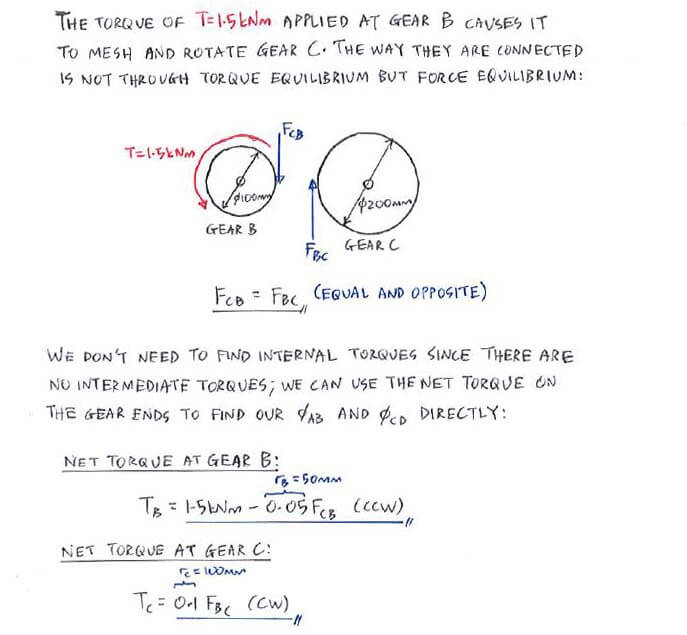 THE TORQUE OF T=1.5kNm APPLIED AT GEAR B CAUSES IT
TO MESH AND ROTATE GEAR C. THE WAY THEY ARE CONNECTED
IS NOT THROUGH TORQUE EQUILIBRIUM BUT FORCE EQUILIBRIUM:
F_CB
T=1.5kNm
ϕ100mm
ϕ200mm
GEAR B
F_BC
GEAR C
F_CB = F_BC (EQUAL AND OPPOSITE)
WE DON'T NEED TO FIND INTERNAL TORQUES SINCE THERE ARE
NO INTERMEDIATE TORQUES; WE CAN USE THE NET TORQUE ON
THE GEAR ENDS TO FIND OUR ϕ_AB AND ϕ_CD DIRECTLY:
NET TORQUE AT GEAR B:
r_B = 50mm
T_B = 1.5kNm - 0.05 F_CB (CCW)
NET TORQUE AT GEAR C:
r_C = 100mm
T_C = 0.1 F_BC (CW)